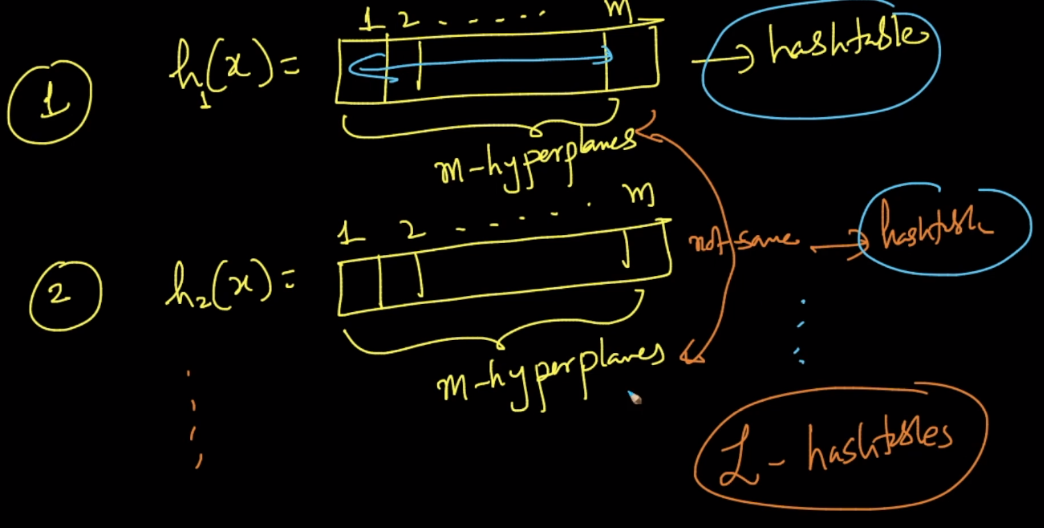 1 2 . . . . . . m
1 h₁(x) = → hashtable
m-hyperplanes
1 2 - - . . . . m
not same → hashtable
2 h₂(x) =
m-hyperplanes
L - hashtables